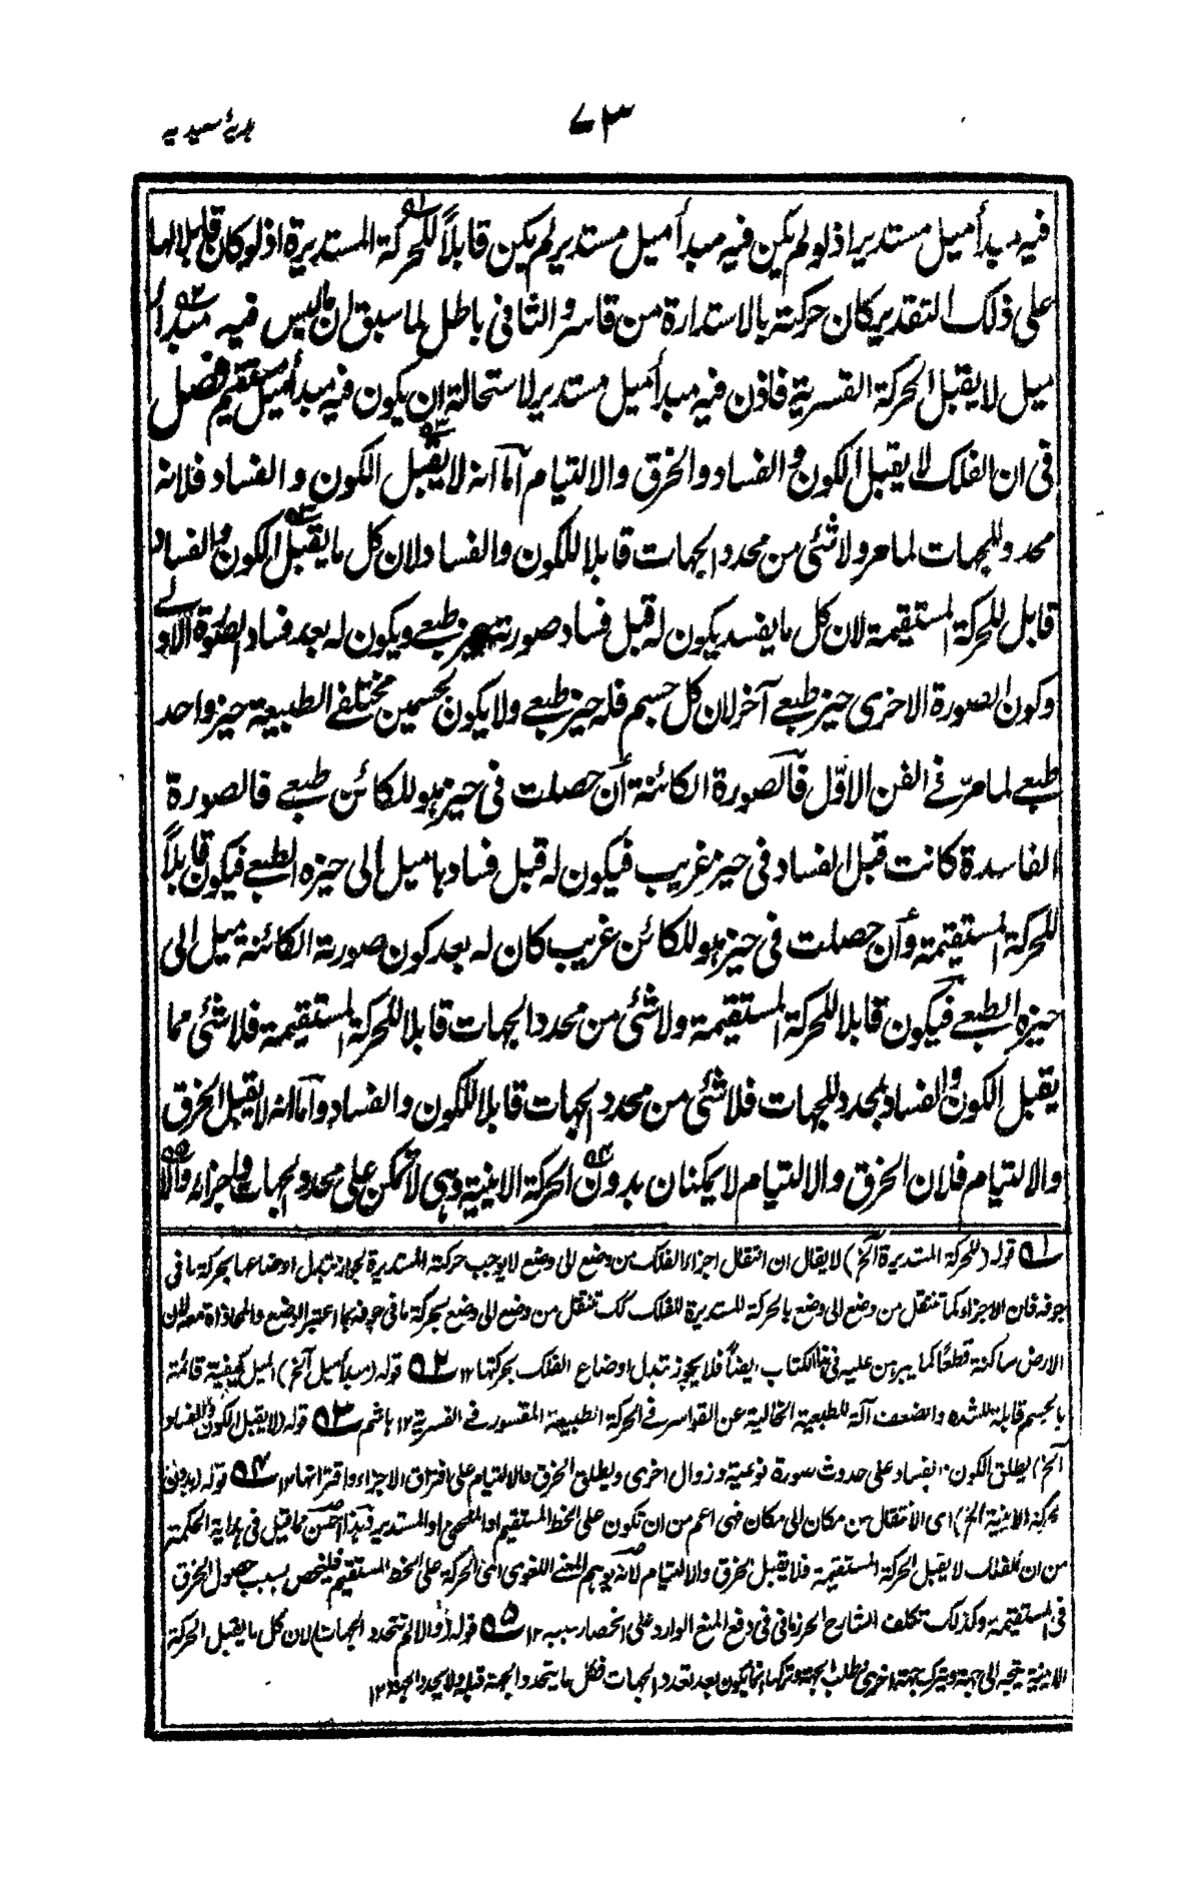 ٧٣
هدیۂ سعیدیہ
فیہ مبدأ میل مستدیر اذ لو لم یکن فیہ مبدأ میل مستدیر لم یکن قابلاً للحرکة المستدیرة اذ لو کان قابلا لہا
علی ذلک التقدیر کان حرکتہ بالاستدارة من قاسر والثانی باطل لما سبق ان ما لیس فیہ مبدأ
میل لا یقبل الحرکة القسریة فاذن فیہ مبدأ میل مستدیر لاستحالة ان یکون فیہ مبدأ میل مستقیم فصل
فی ان الفلک لا یقبل الکون و الفساد والخرق والالتیام اما انہ لا یقبل الکون و الفساد فلانہ
محدد للجہات لما مر ولا شئی من محدد الجہات قابلا للکون والفساد لان کل ما یقبل الکون والفساد
قابل للحرکة المستقیمة لان کل ما یفسد یکون لہ قبل فساد صورتہ حیز طبعے ویکون لہ بعد فساد الصورة الاولے
وکون الصورة الاخری حیز طبعے آخر لان کل جسم فلہ حیز طبعے ولا یکون لجسمین مختلفے الطبیعة حیز واحد
طبعے لما مرّ فے الفن الاوّل فالصورة الکائنة ان حصلت فی حیز ہو للکائن طبعے فالصورة
الفاسدة کانت قبل الفساد فی حیز غریب فیکون لہ قبل فسادہا میل الی حیزہ الطبعے فیکون قابلاً
للحرکة المستقیمة وان حصلت فی حیز ہو للکائن غریب کان لہ بعد کون صورتہ الکائنة میل الی
حیزہ الطبعے فیکون قابلا للحرکة المستقیمة ولا شئی من محدد الجہات قابلا للحرکة المستقیمة فلا شئی مما
یقبل الکون والفساد بمحدد للجہات فلا شئی من محدد الجہات قابلا للکون والفساد واما انہ لا یقبل الخرق
والالتیام فلان الخرق والالتیام لا یمکنان بدون الحرکة الاینیة وہی لا تمکن علی محدد الجہات واجزائہ والا
۵۱ قولہ (للحرکة المستدیرة آلخ) لا یقال ان انتقال اجزاء الفلک من وضع الی وضع لا یوجب حرکتہ المستدیرة لجواز تبدل اوضاعہا بحرکة ما فی
جوفہ فان الاجزاء کما تنتقل من وضع الی وضع بالحرکة المستدیرة للفلک کک تنتقل من وضع الی وضع بحرکة ما فی جوفہ مما اعتبر الوضع والمحاذاة معہ لان
الارض ساکنة قطعًا کما یبرہن علیہ فی ہذا الکتاب ایضاً فلا یجوز تبدل اوضاع الفلک بحرکتہا ١٢ ۵۲ قولہ (مبدأ میل آلخ) المیل کیفیة قائمة
بالجسم قابلة للشدہ والضعف آلة للطبیعة الخالیة عن القواسر فے الحرکة الطبیعیة المقسور فے القسریة ١٢ ہاشم ۵۳ قولہ (لا یقبل الکون والفساد
آلخ) یطلق الکون والفساد علی حدوث صورة نوعیة وزوال اخری ویطلق الخرق والالتیام علی افتراق الاجزاء واقترانہا ١٢ ۵۴ قولہ (بدون
الحرکة الاینیة الخ) ای الانتقال من مکان الی مکان فہی اعم من ان تکون علی الخط المستقیم او المنحنی او المستدیر فہذا احسن مما قیل فی ہدایة الحکمة
من ان الفلک لا یقبل الحرکة المستقیمة فلا یقبل الخرق والالتیام لانہ یوہم المعنی اللغوی اعنی الحرکة علی الخط المستقیم فیلخص بسبب حصول الخرق
فی المستقیمة وکذلک تکلف الشارح الخرزمانی فی دفع المنع الوارد علی انحصار سببہ ١٢ ۵۵ قولہ (والا لم تتحدد الجہات) لان کل ما یقبل الحرکة
الاینیة یتجہ الی جہة ویترک جہة اخری فطلب الجہة وترکہا انما یکون بعد تعدد الجہات فکل ما یتحدد الجہة قبلہ ولا یحدد الجہة ١٢